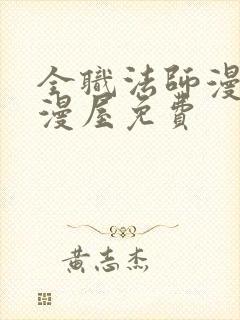 全職法師漫
漫屋免費
黃志杰